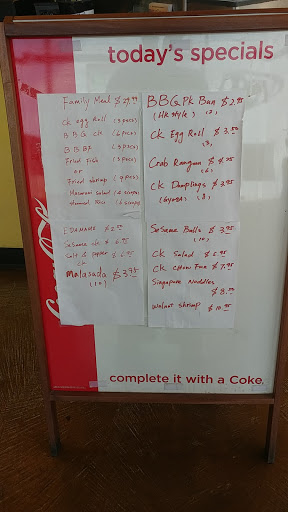 today's specials
Family Meal $29.99
CK egg Roll (3 pecs)
BBQ CK (6 pecs)
BBQ
Fried Fish (5 pecs)
or
Fried shrimp (9 pecs)
Macaroni salad (4 scoops)
steamed Rice (6 scoops)
EDAMAME $2.
Sesame ck $6.95
Salt & pepper $6.95
CK
Malasada $3.95
(10)
BBQ PK Bun $2.95
(HK style) (2)
CK Egg Roll $3.50
(3)
Crab Rangoon $4.25
(6)
CK Dumplings $3.95
(Gyoza) (8)
Sesame Balls $3.95
(10)
CK Salad $5.95
CK Chow Fun $7.95
Singapore Noodles
$8.50
Walnut Shrimp $10.95
Coca-Cola
complete it with a Coke.